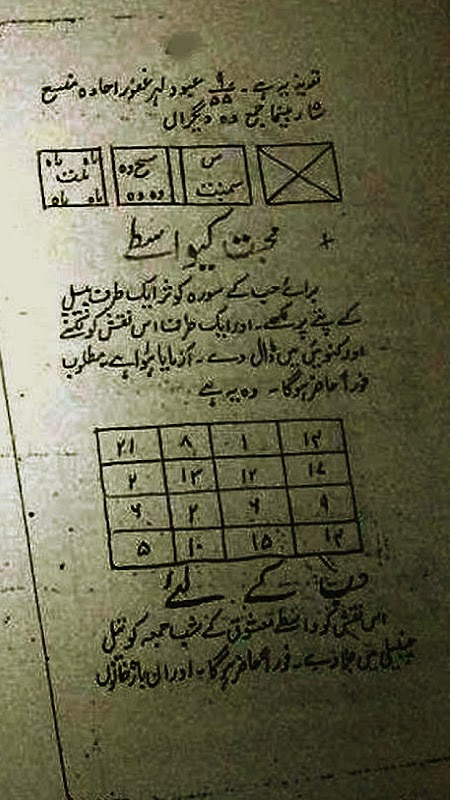 تعویذ یہ ہے۔ ۹/۵۵ عبود
شار وہ دیگرال
ماہ ماہ
ماہ ماہ
سح وہ
وہ وہ
س
محبت کیواسطے
برائے حب کے سورہ کوثر ایک طرف پیپل
کے پتے پر لکھے۔ اور ایک طرف اس نقش کو لکھے
اور کنوئیں میں ڈال دے۔ آزمایا ہوا ہے مطلوب
فوراً حاضر ہوگا۔ وہ یہ ہے
۲۱ ۸ ۱ ۱۴
۲ ۱۳ ۱۲ ۱۷
۶ ۲ ۶ ۹
۵ ۱۰ ۱۵ ۱۴
حب کے لئے
اس نقش کو واسطے معشوق کے شب جمعہ کو
چنبیلی میں جلا دے۔ فوراً حاضر ہوگا۔ اور